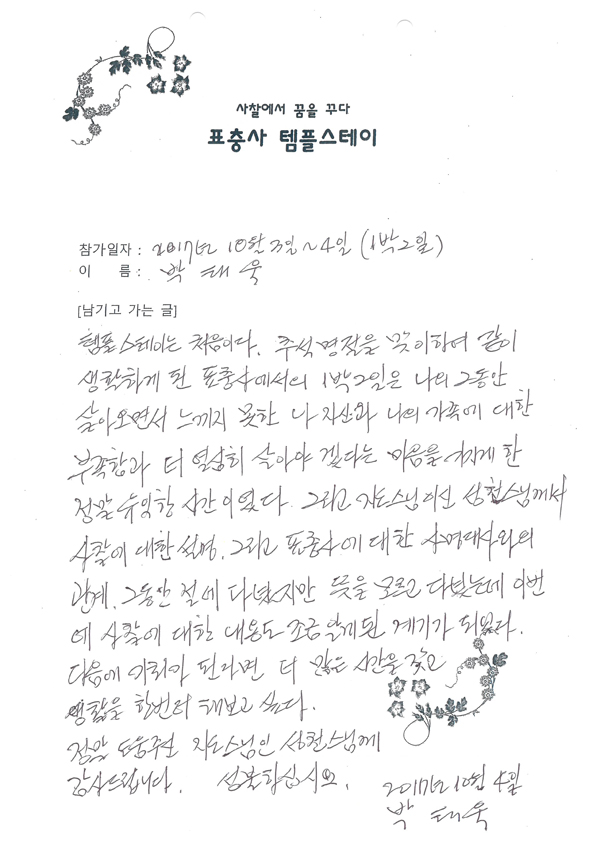 사찰에서 꿈을 꾸다
표충사 템플스테이
참가일자 : 2017년 10월 3일 ~ 4일 (1박2일)
이 름 : 박 태 욱
[남기고 가는 글]
템플스테이는 처음이다. 추석 명절을 맞이하여 같이
생활하게 된 표충사에서의 1박2일은 나의 그동안
살아오면서 느끼지 못한 나 자신과 나의 가족에 대한
부족함과 더 열심히 살아야 겠다는 마음을 가지게 한
정말 유익한 시간이였다. 그리고 지도스님이신 성천스님께서
사찰에 대한 설명, 그리고 표충사에 대한 사명대사와의
관계, 그동안 절에 다녔지만 뜻을 모르고 다녔는데 이번
에 사찰에 대한 내용도 조금 알게된 계기가 되였다.
다음에 기회가 된다면 더 많은 시간을 갖고
생활을 한번더 해보고 싶다.
정말 도움주신 지도스님인 성천스님께
감사드립니다. 성불하십시요.
2017년 10월 4일
박 태 욱